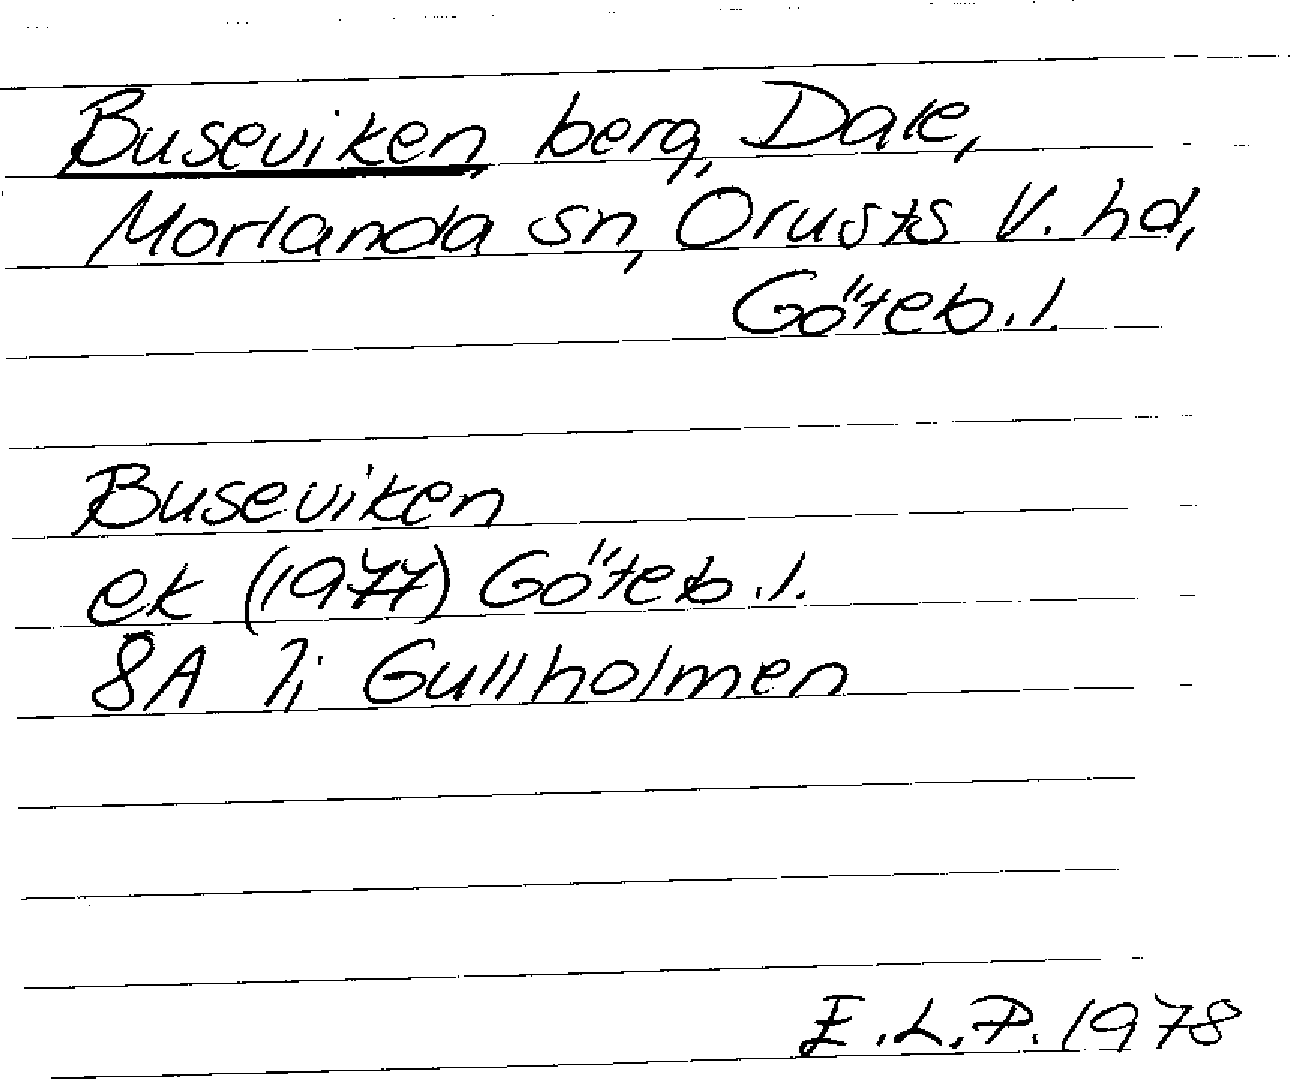 Buseviken, berg, Dale,
Morlanda sn, Orusts V. hd,
Göteb. l.
Buseviken
ek (1977) Göteb. l.
8A 7i Gullholmen
E.L.P. 1978